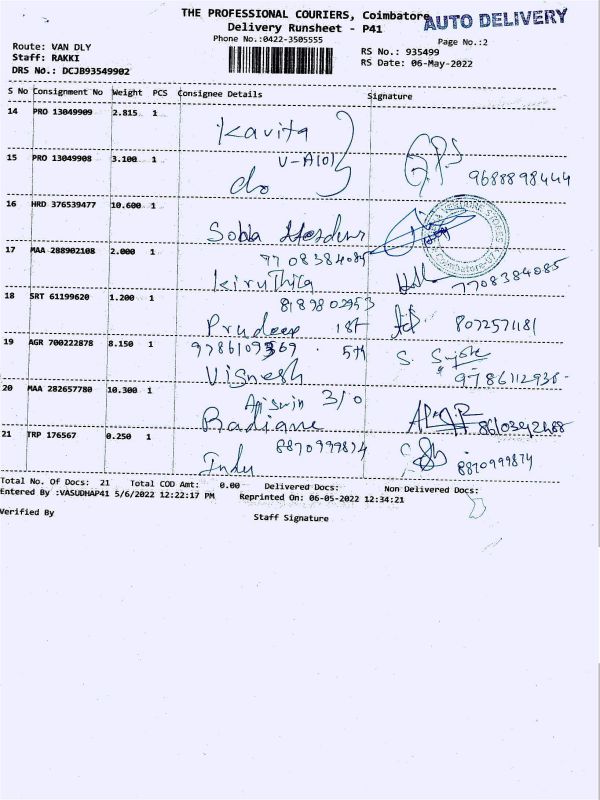 THE PROFESSIONAL COURIERS, Coimbatore
AUTO DELIVERY
Delivery Runsheet - P41
Phone No.:0422-3505555
Page No.:2
Route: VAN DLY
Staff: RAKKI
DRS No.: DCJB93549902
RS No.: 935499
RS Date: 06-May-2022
S No Consignment No Weight PCS Consignee Details Signature
14 PRO 13049909 2.815 1 Kavita
15 PRO 13049908 3.100 1 V-A101
do 9688898444
16 HRD 376539477 10.600 1
Sobla
17 MAA 288902108 2.000 1 7708384085
Kiruthila 7708384085
18 SRT 61199620 1.200 1 8189802953
Prudeep 1st 8072571181
19 AGR 700222878 8.150 1 9786109369 5th
Vignesh S. 9786112936-
20 MAA 282657780 10.300 1 3/0
21 TRP 176567 0.250 1 8870999874
Indu 8870999874
Total No. Of Docs: 21 Total COD Amt: 0.00 Delivered Docs: Non Delivered Docs:
Entered By :VASUDHAP41 5/6/2022 12:22:17 PM Reprinted On: 06-05-2022 12:34:21
Verified By
Staff Signature